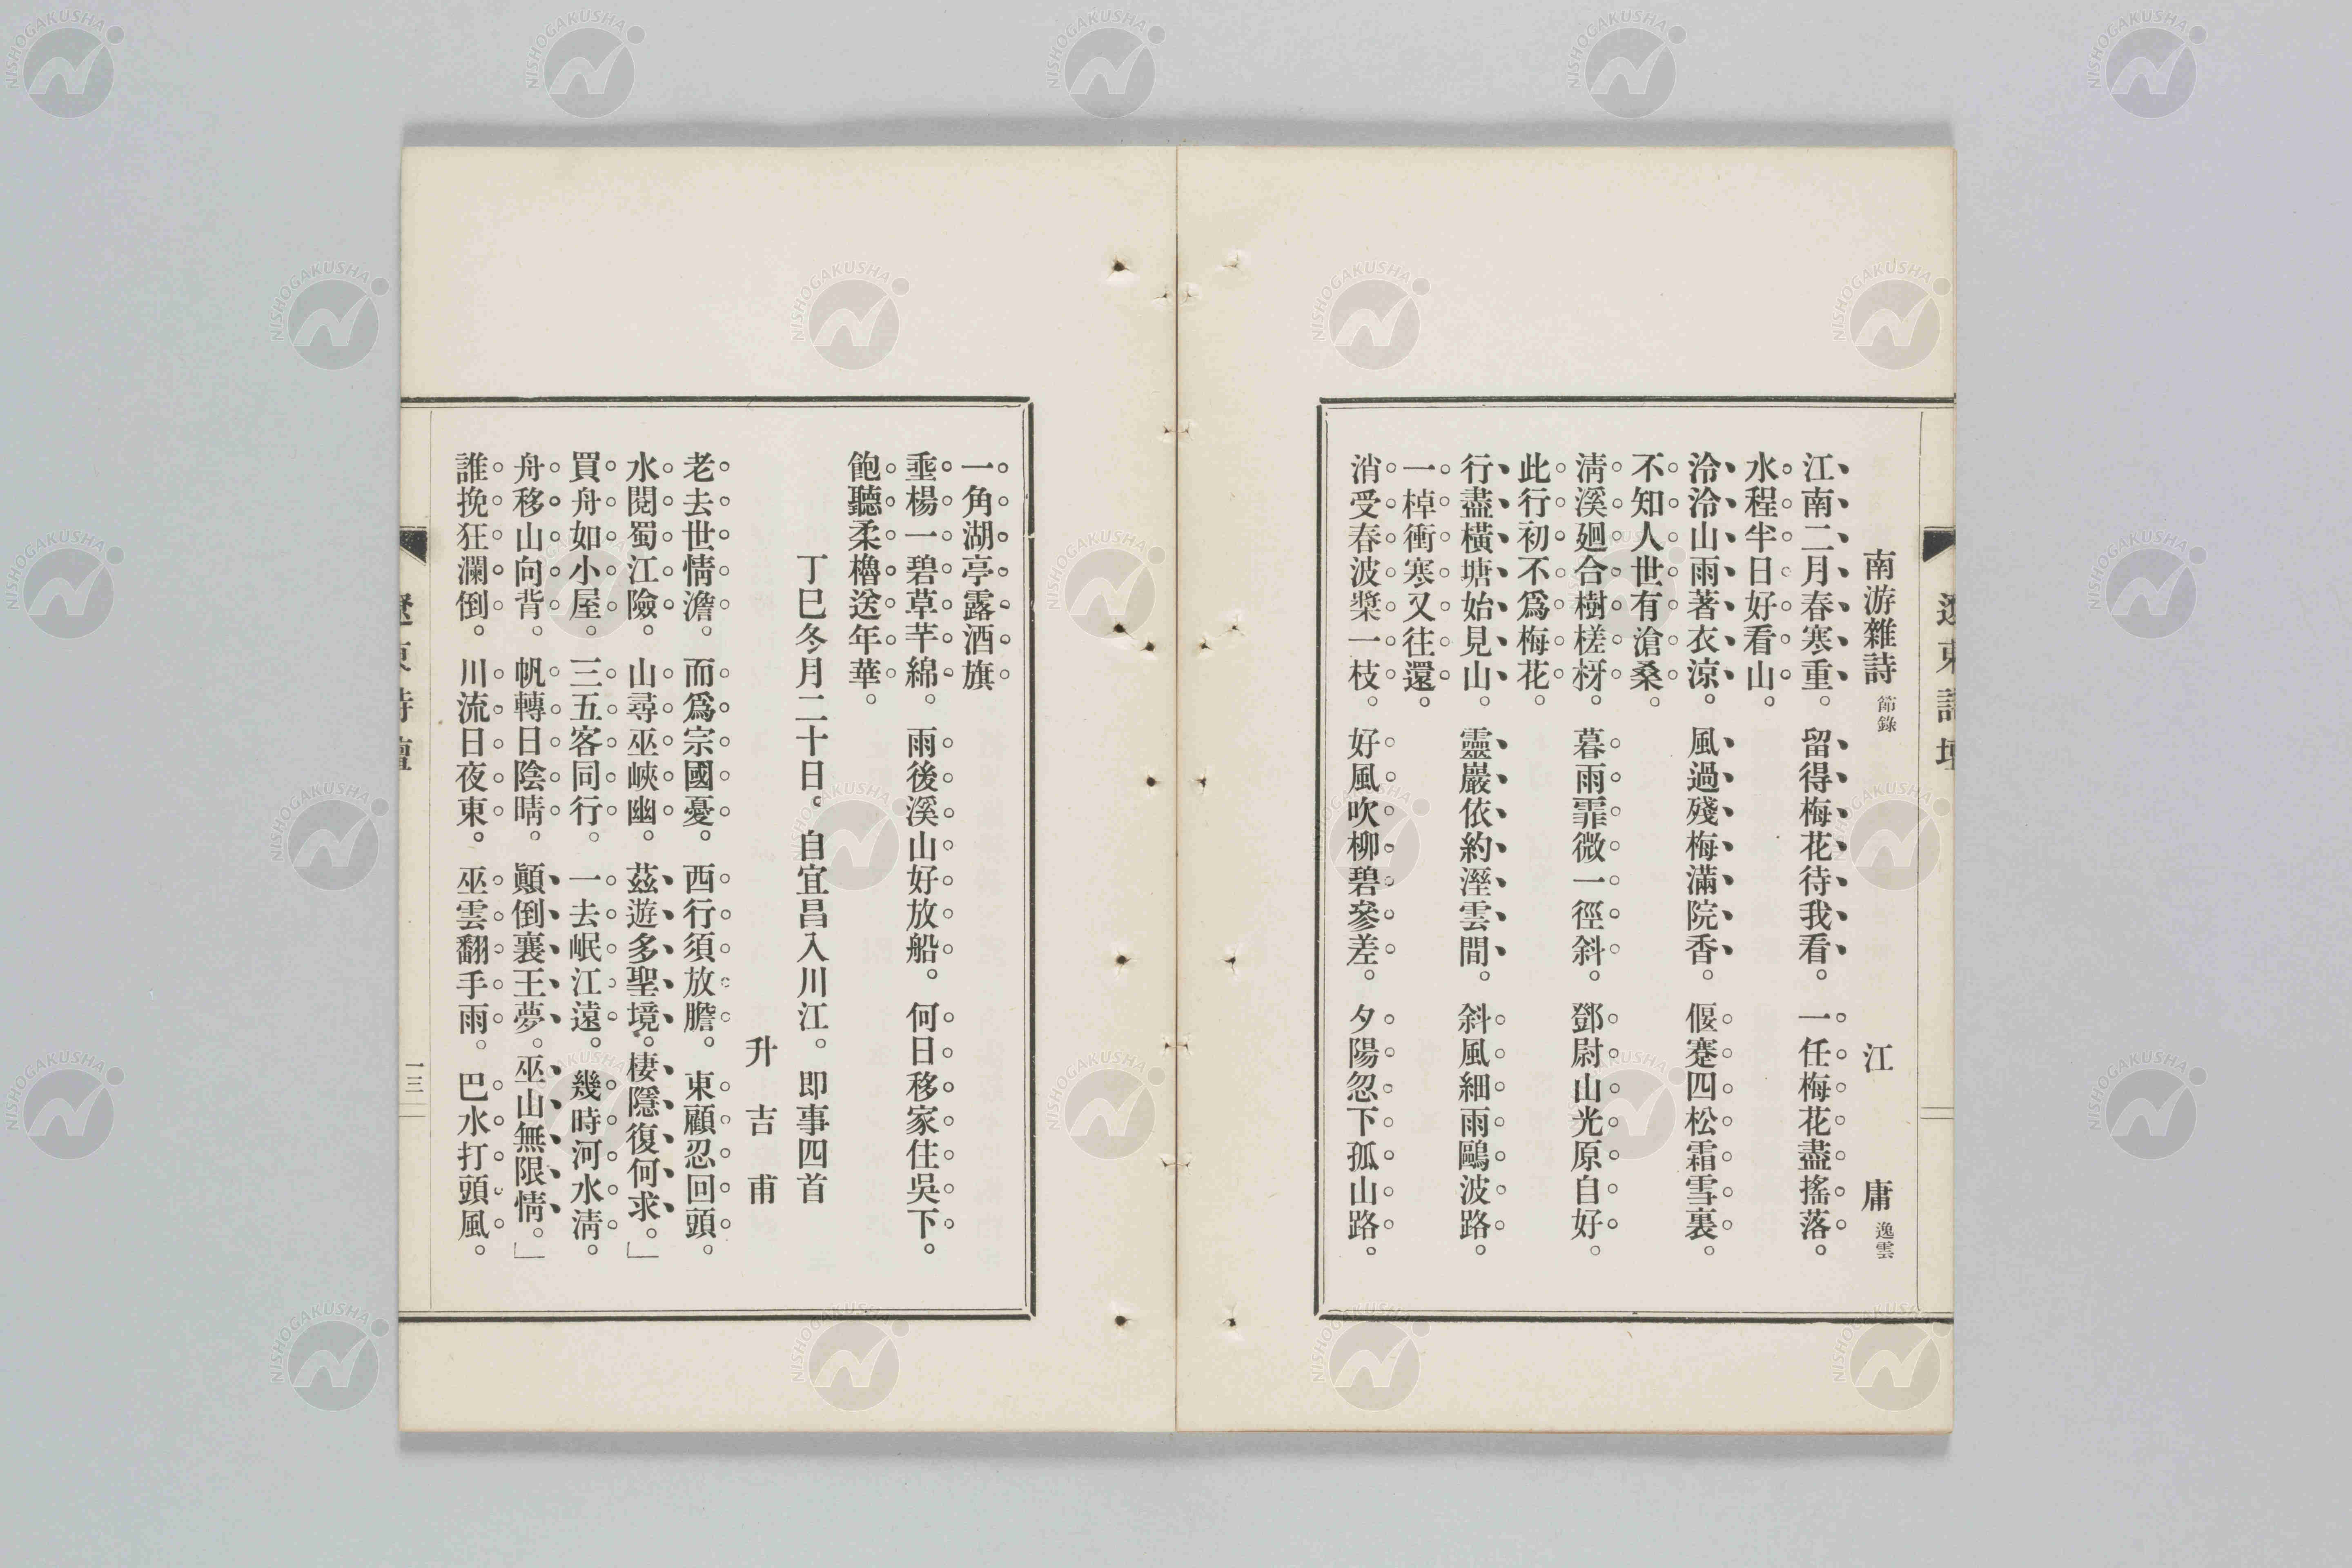 遼東詩壇
南游雜詩 節錄 江庸 逸雲
江南二月春寒重。留得梅花待我看。一任梅花盡搖落。
水程半日好看山。
泠泠山雨著衣涼。風過殘梅滿院香。偃蹇四松霜雪裏。
不知人世有滄桑。
淸溪廻合樹槎枒。暮雨霏微一徑斜。鄧尉山光原自好。
此行初不爲梅花。
行盡橫塘始見山。靈巖依約溼雲間。斜風細雨鷗波路。
一棹衝寒又往還。
消受春波槳一枝。好風吹柳碧參差。夕陽忽下孤山路。
一角湖亭露酒旗
垂楊一碧草芊綿。雨後溪山好放船。何日移家住吳下。
飽聽柔櫓送年華。
丁巳冬月二十日。自宜昌入川江。即事四首
升吉甫
老去世情澹。而爲宗國憂。西行須放膽。東顧忍回頭。
水閱蜀江險。山尋巫峽幽。茲遊多聖境。棲隱復何求。」
買舟如小屋。三五客同行。一去岷江遠。幾時河水淸。
舟移山向背。帆轉日陰晴。顚倒襄王夢。巫山無限情。」
誰挽狂瀾倒。川流日夜東。巫雲翻手雨。巴水打頭風。
遼東詩壇
一三
NISHOGAKUSHA